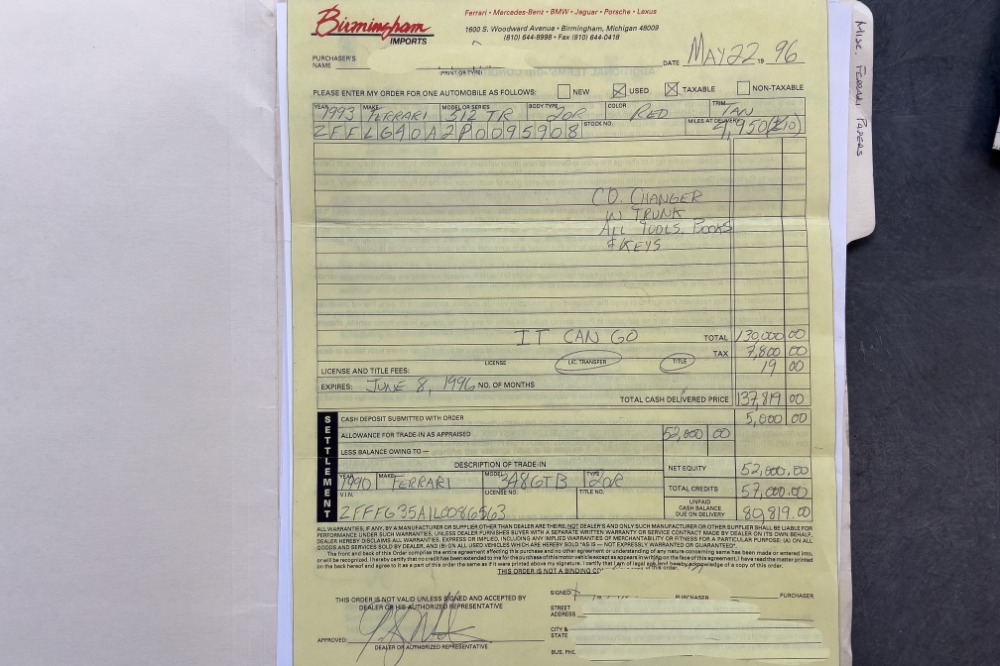 Birmingham
IMPORTS
Ferrari • Mercedes-Benz • BMW • Jaguar • Porsche • Lexus
1600 S. Woodward Avenue • Birmingham, Michigan 48009
(810) 644-8998 • Fax (810) 644-0418
MISC. FERRARI PAPERS
PURCHASER'S
NAME
(PRINT OR TYPE)
DATE MAY 22 19 96
PLEASE ENTER MY ORDER FOR ONE AUTOMOBILE AS FOLLOWS: NEW USED TAXABLE NON-TAXABLE
YEAR MAKE MODEL OR SERIES BODY TYPE COLOR TRIM
1993 FERRARI 512 TR 2DR RED TAN
STOCK NO. MILES AT DELIVERY
ZFFLG40A2P0095908 4,950
CD. CHANGER
IN TRUNK
ALL TOOLS, BOOKS
& KEYS
IT CAN GO TOTAL 130,000 00
TAX 7,800 00
LICENSE LIC. TRANSFER TITLE
LICENSE AND TITLE FEES: 19 00
EXPIRES: JUNE 8, 1996 NO. OF MONTHS
TOTAL CASH DELIVERED PRICE 137,819 00
SETTLEMENT
CASH DEPOSIT SUBMITTED WITH ORDER 5,000 00
ALLOWANCE FOR TRADE-IN AS APPRAISED 52,000 00
LESS BALANCE OWING TO —
DESCRIPTION OF TRADE-IN
NET EQUITY 52,000.00
YEAR MAKE MODEL TYPE
1990 FERRARI 348GTB 2DR
TOTAL CREDITS 57,000.00
V.I.N. LICENSE NO. TITLE NO.
ZFFFG35A1L0086563
UNPAID
CASH BALANCE
DUE ON DELIVERY 80,819.00
ALL WARRANTIES, IF ANY, BY A MANUFACTURER OR SUPPLIER OTHER THAN DEALER ARE THEIRS, NOT DEALER'S AND ONLY SUCH MANUFACTURER OR OTHER SUPPLIER SHALL BE LIABLE FOR
PERFORMANCE UNDER SUCH WARRANTIES, UNLESS DEALER FURNISHES BUYER WITH A SEPARATE WRITTEN WARRANTY OR SERVICE CONTRACT MADE BY DEALER ON ITS OWN BEHALF.
DEALER HEREBY DISCLAIMS ALL WARRANTIES, EXPRESS OR IMPLIED, INCLUDING ANY IMPLIED WARRANTIES OF MERCHANTABILITY OR FITNESS FOR A PARTICULAR PURPOSE: (A) ON ALL
GOODS AND SERVICES SOLD BY DEALER, AND (B) ON ALL USED VEHICLES WHICH ARE HEREBY SOLD "AS IS — NOT EXPRESSLY WARRANTED OR GUARANTEED".
The front and back of this Order comprise the entire agreement affecting this purchase and no other agreement or understanding of any nature concerning same has been made or entered into,
or will be recognized. I hereby certify that no credit has been extended to me for the purchase of this motor vehicle except as appears in writing on the face of this agreement. I have read the matter printed
on the back hereof and agree to it as a part of this order the same as if it were printed above my signature. I certify that I am of legal age and hereby acknowledge of a copy of this order.
THIS ORDER IS NOT A BINDING
SIGNED PURCHASER PURCHASER
THIS ORDER IS NOT VALID UNLESS SIGNED AND ACCEPTED BY
DEALER OR HIS AUTHORIZED REPRESENTATIVE
STREET
ADDRESS
CITY &
STATE
APPROVED:
DEALER OR AUTHORIZED REPRESENTATIVE
BUS. PH.